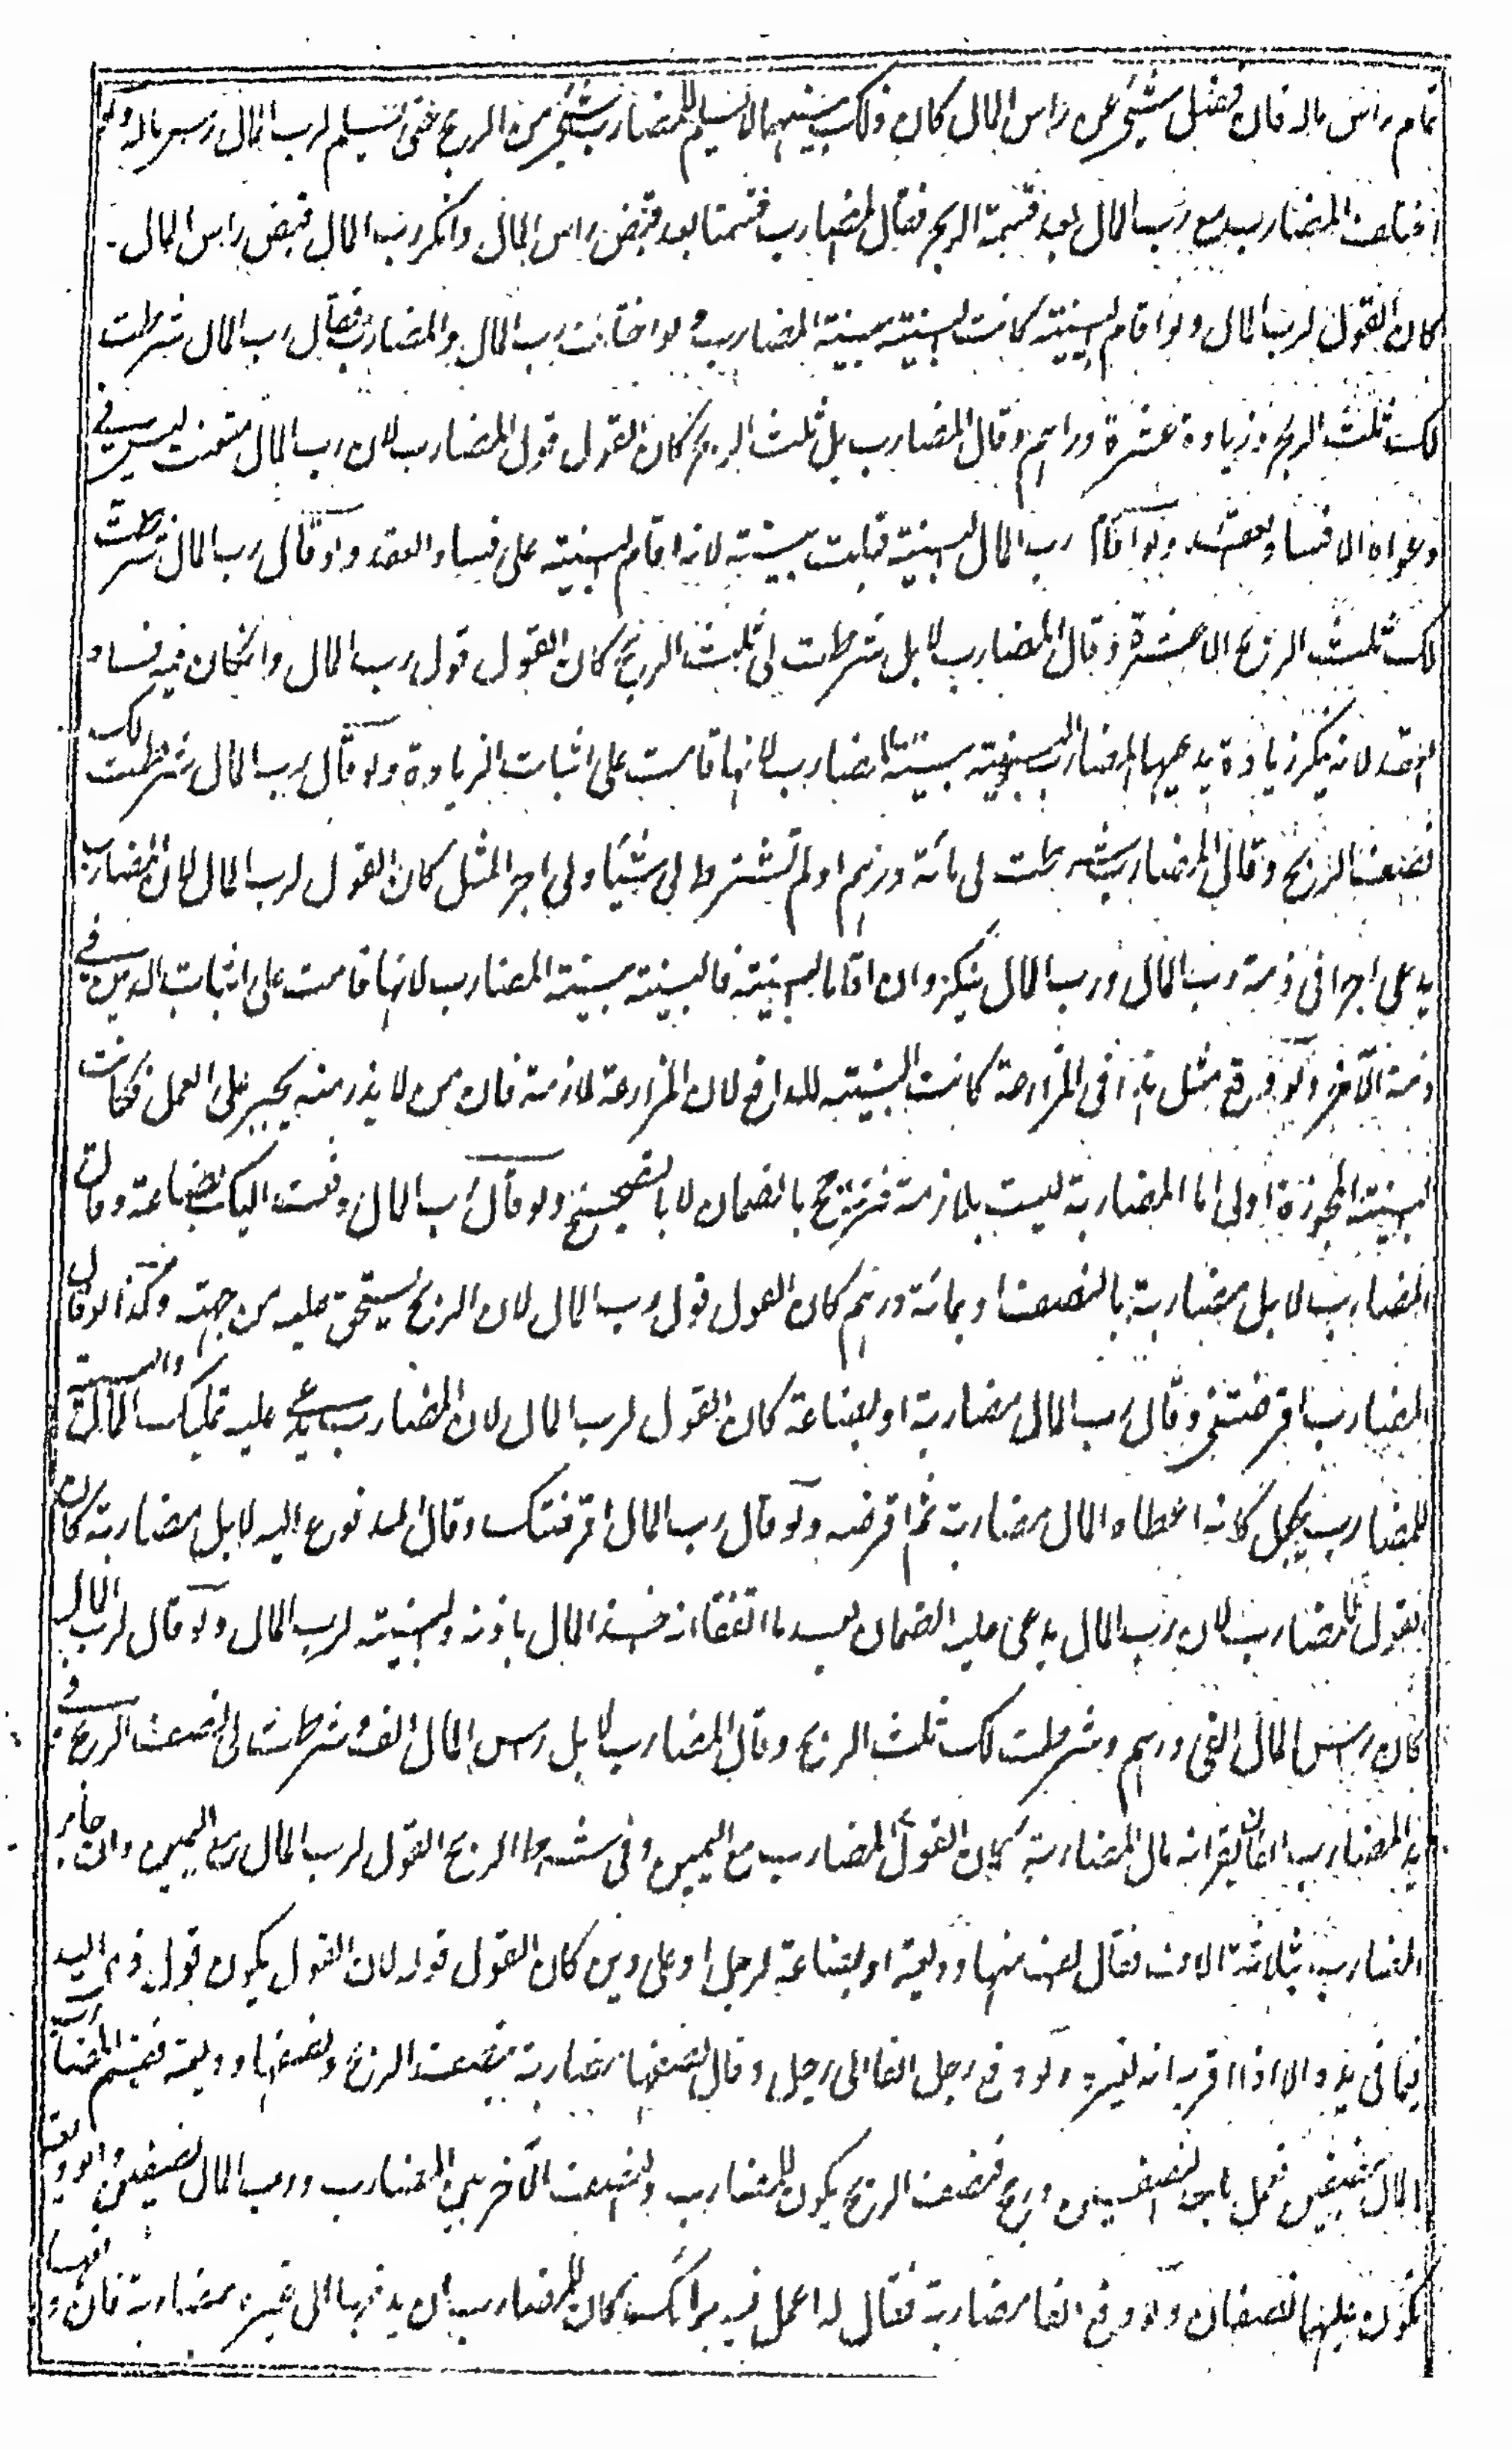 تمام راس ماله فان فضل شئ عن راس المال كان ذلك بينهما لا يسلم للمضارب شئ من الربح حتى يسلم لرب المال راس ماله ولو
اختلف المضارب مع رب المال بعد قسمة الربح فقال المضارب قسمنا بعد قبض راس المال وانكر رب المال قبض راس المال
كان القول لرب المال ولو اقام البينة كانت البينة بينة المضارب ولو اختلف رب المال والمضارب فقال رب المال شرطت
لك ثلث الربح وزيادة عشرة دراهم وقال المضارب بل ثلث الربح كان القول قول المضارب لان رب المال متعنت ليس في
دعواه الا فساد العقد ولو اقام رب المال البينة قبلت بينته لانه اقام البينة على فساد العقد ولو قال رب المال شرطت
لك ثلث الربح الا عشرة وقال المضارب لا بل شرطت لي ثلث الربح كان القول قول رب المال وان كان فيه فساد
العقد لانه ينكر زيادة يدعيها المضارب والبينة بينة المضارب لانها قامت على اثبات الزيادة ولو قال رب المال شرطت لك
نصف الربح وقال المضارب شرطت لي مائة درهم او لم تشترط لي شيئا ولي اجر المثل كان القول لرب المال لان المضارب
يدعي اجرا في ذمة رب المال ورب المال ينكر وان اقاما البينة فالبينة بينة المضارب لانها قامت على اثبات الدين في
ذمة الآخر ولو وقع مثل هذا في المزارعة كانت البينة للدافع لان المزارعة لازمة فان من لا بذر منه يجبر على العمل فكانت
البينة المجوزة اولى اما المضاربة ليست بلازمة فترجح بالضمان لا بالتصحيح ولو قال رب المال دفعت اليك بضاعة وقال
المضارب لا بل مضاربة بالنصف او بمائة درهم كان القول قول رب المال لان الربح يستحق عليه من جهته وكذا لو قال
المضارب اقرضتني وقال رب المال مضاربة او بضاعة كان القول لرب المال لان المضارب يدعي عليه تمليك المال والبينة
للمضارب يجعل كانه اعطاه المال مضاربة ثم اقرضه ولو قال رب المال اقرضتك وقال المدفوع اليه لا بل مضاربة كان
القول للمضارب لان رب المال يدعي عليه الضمان بعد ما اتفقا انه اخذ المال باذنه والبينة لرب المال ولو قال رب المال
كان راس المال الفي درهم وشرطت لك ثلث الربح وقال المضارب لا بل راس المال الف وشرطت لي نصف الربح وفي
يد المضارب الفان يقر انه مال المضاربة كان القول للمضارب مع اليمين وفي شرط الربح القول لرب المال مع اليمين وان جاء
المضارب بثلاثة الاف فقال الف منها وديعة او بضاعة لرجل او على دين كان القول قوله لان القول يكون قول ذي اليد
فيما في يده الا اذا اقر به انه لغيره ولو دفع رجل الفا الى رجل وقال نصفها مضاربة بنصف الربح ونصفها وديعة فقسم المضارب
المال نصفين فعمل باحد النصفين وربح فنصف الربح يكون للمضارب والنصف الآخر بين المضارب ورب المال نصفين والوديعة
تكون عليهما نصفان ولو دفع الفا مضاربة فقال له اعمل فيه برايك كان للمضارب ان يدفعها الى غيره مضاربة فان دفعها